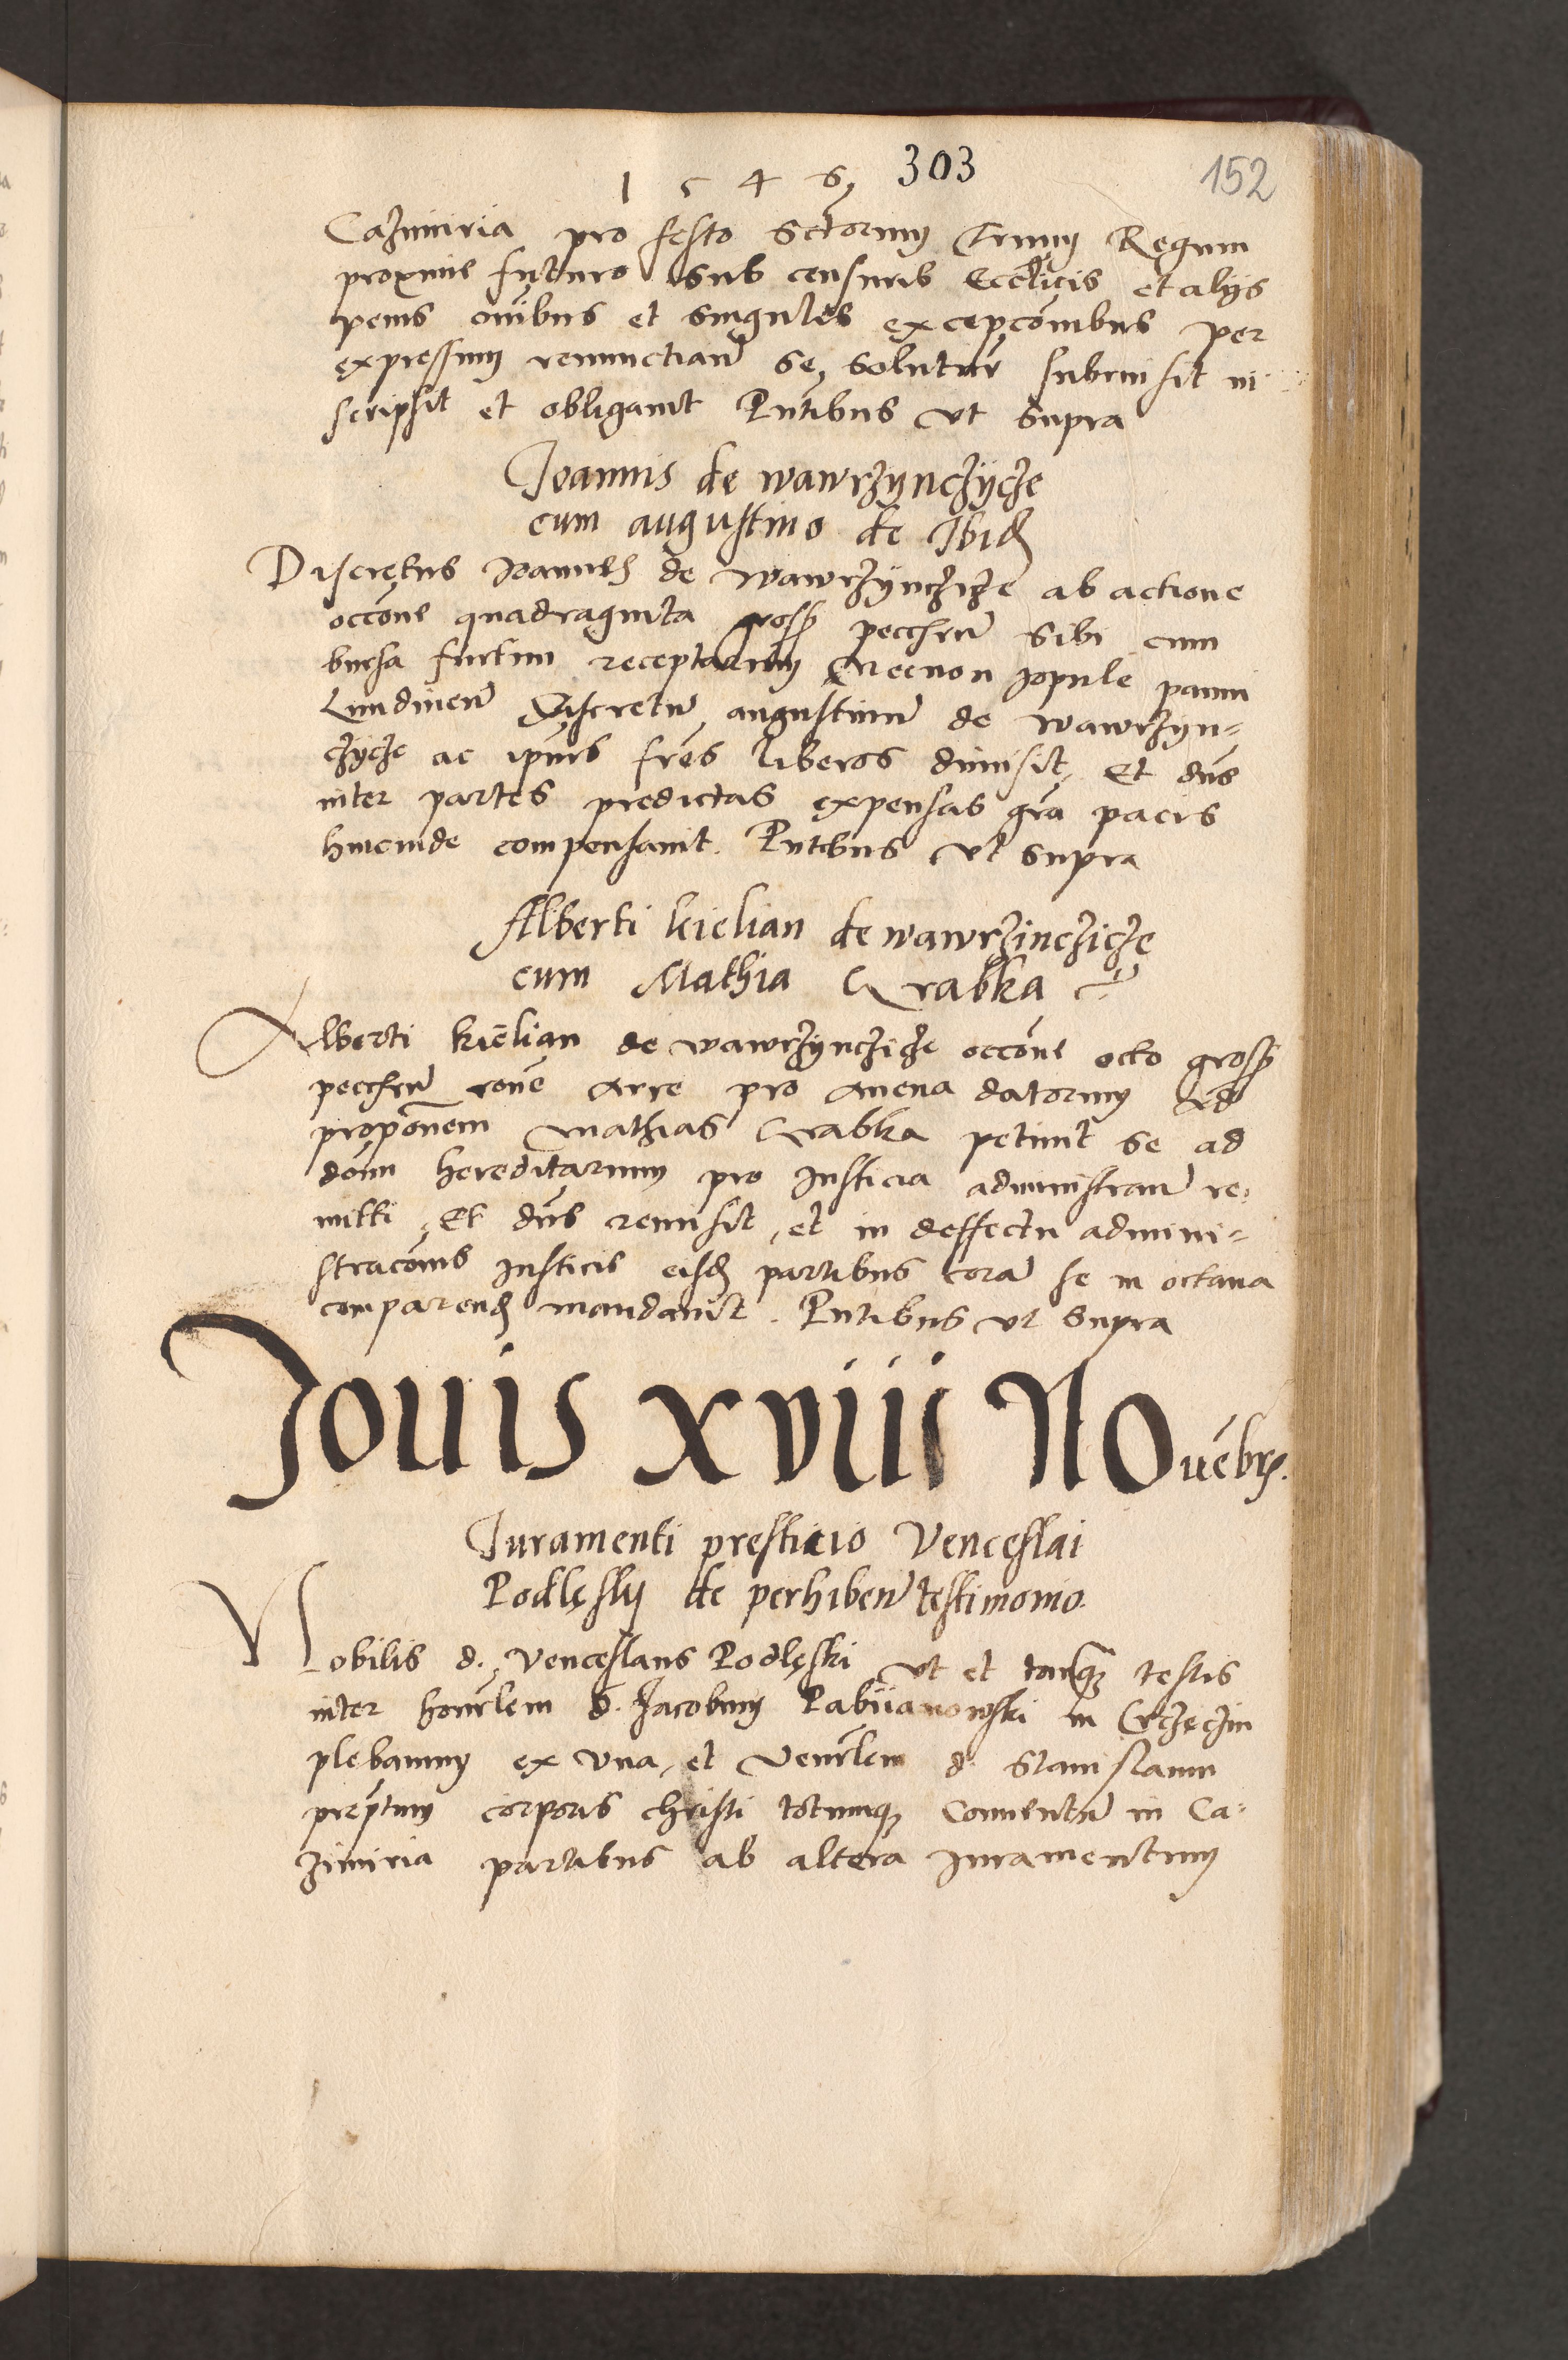 1 5 4 6, 303 152
Cazimiria pro festo Sctorum Trium Regum
proxime futuro sub censuris Eccl̃icis et alijs
penis om̃ibus et singul̃es excepcõnibus per
expressum renunctiañ se, soluturũ submisit in
scripsit et obligauit Pñtibus vt supra
Joannis de wawrzynczÿcze
cum augustino de Ibid
Discretus Joannes de wawrzÿnczicze ab actione
occõne quadraginta gross pecchrũ sibi cum
bursa furtim receptarum Necnon jopule panni
Lundineñ Discretũ augustinũ de wawrzyn=
czÿcze ac ipius fres liberos dimisit, Et dñs
inter partes predictas expensas gr̃a pacis
hincinde compensauit. Pñtibus vt supra
Alberti kielian de wawrzinczicze
cum Mathia Grabka
Alberti kielian de wawrzÿnczicze occõne octo gross
pecchrũ rõne arre pro auena datorum Ad
propõnem Mathias Grabka petiuit se ad
dõm hereditarium pro Justicia administrañ re=
mitti, Et dñs remisit, et in deffectu admini=
stracõnis Justicie eisd partibus corã se in octaua
comparend mandauit. Pñtibus vt supra
Jouis xviii Nouẽbrs.
Juramenti presticio Venceslai
Podlęskij de perhibeñ testimonio.
Nobilis d. Venceslaus Podlęski vt et tanq̃ testis
inter honor̃lem d. Jacobum Pabiianowski in
plebanum ex vna, et Vener̃lem d. Stanislaum
prep̃tum corporis christi totumq̃ Conuentũ in Ca=
zimiria partibus ab altera Juramentum